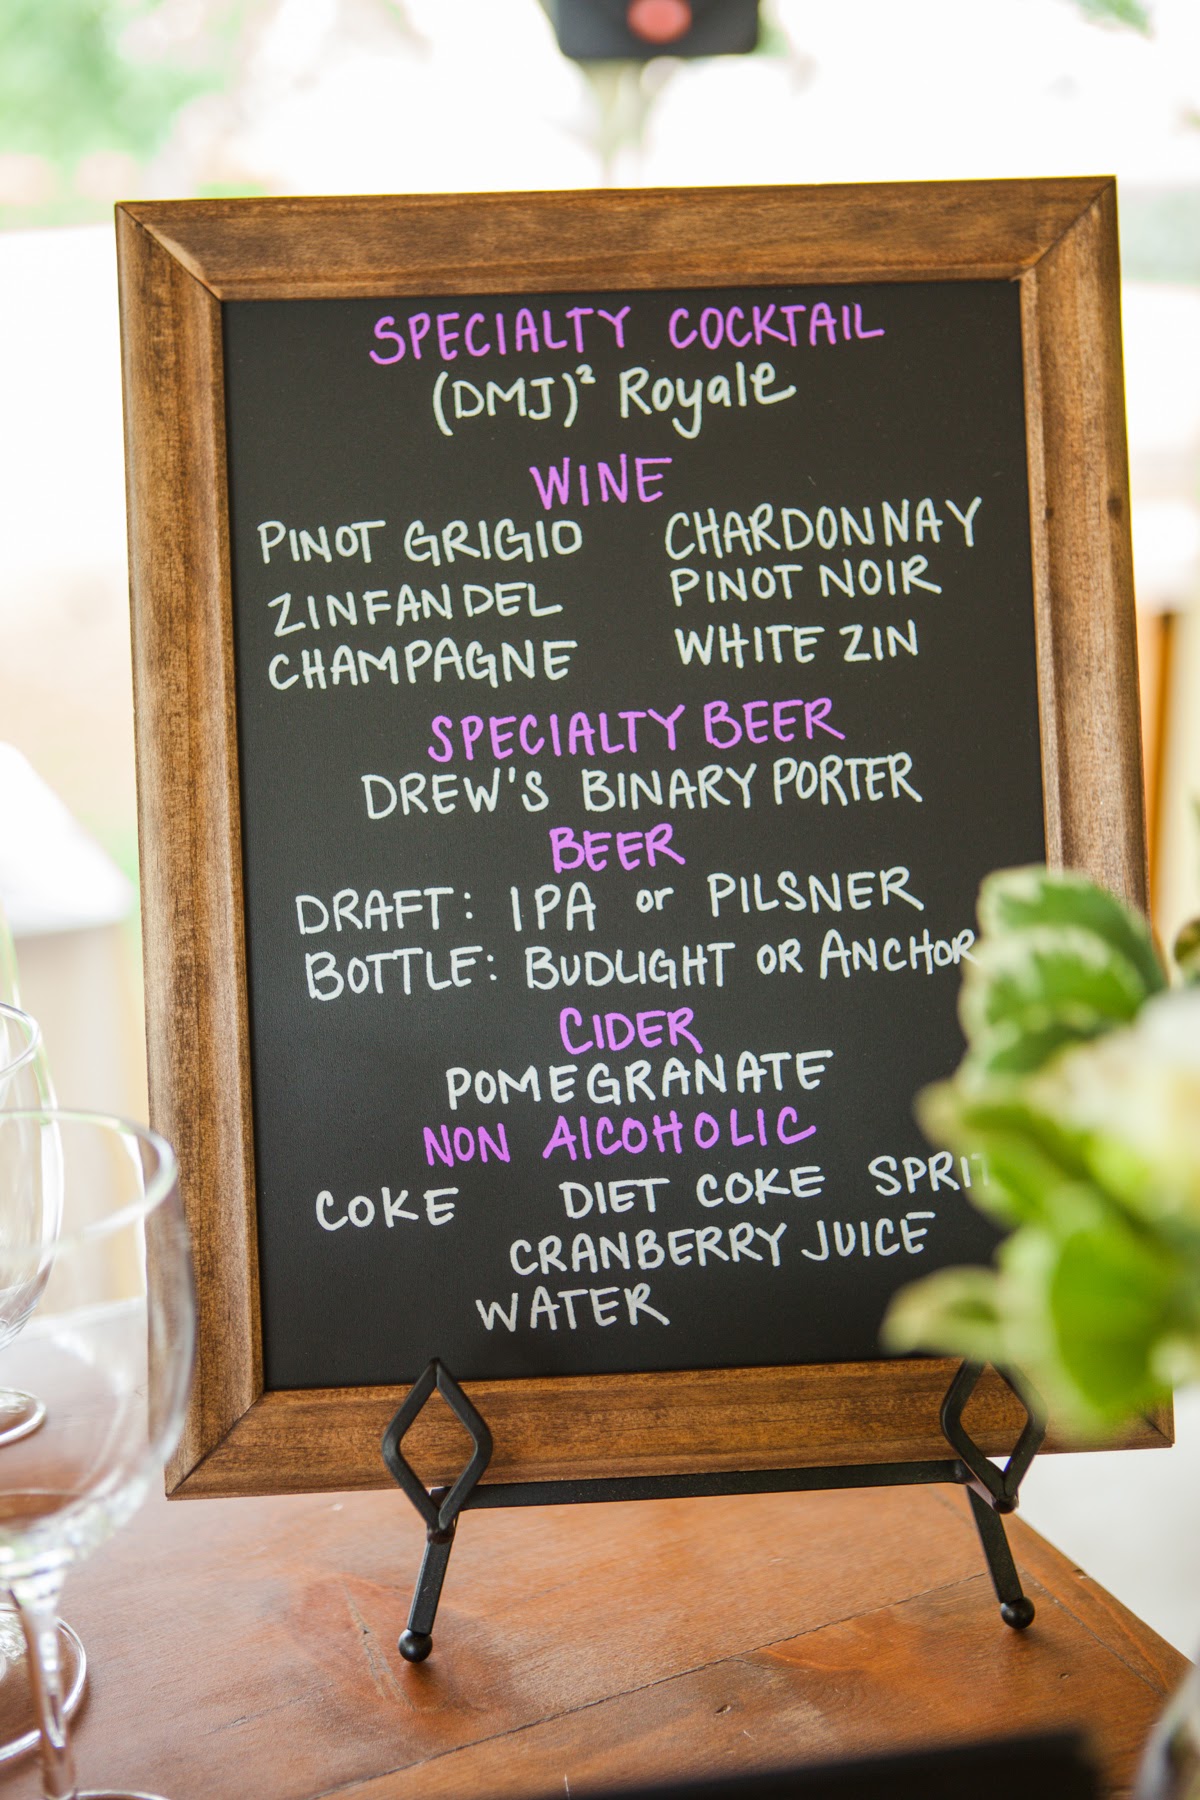 SPECIALTY COCKTAIL
(DMJ)² Royale
WINE
PINOT GRIGIO CHARDONNAY
ZINFANDEL PINOT NOIR
CHAMPAGNE WHITE ZIN
SPECIALTY BEER
DREW'S BINARY PORTER
BEER
DRAFT: IPA or PILSNER
BOTTLE: BUDLIGHT OR ANCHOR
CIDER
POMEGRANATE
NON AlCOHOLIC
COKE DIET COKE SPRIT
CRANBERRY JUICE
WATER